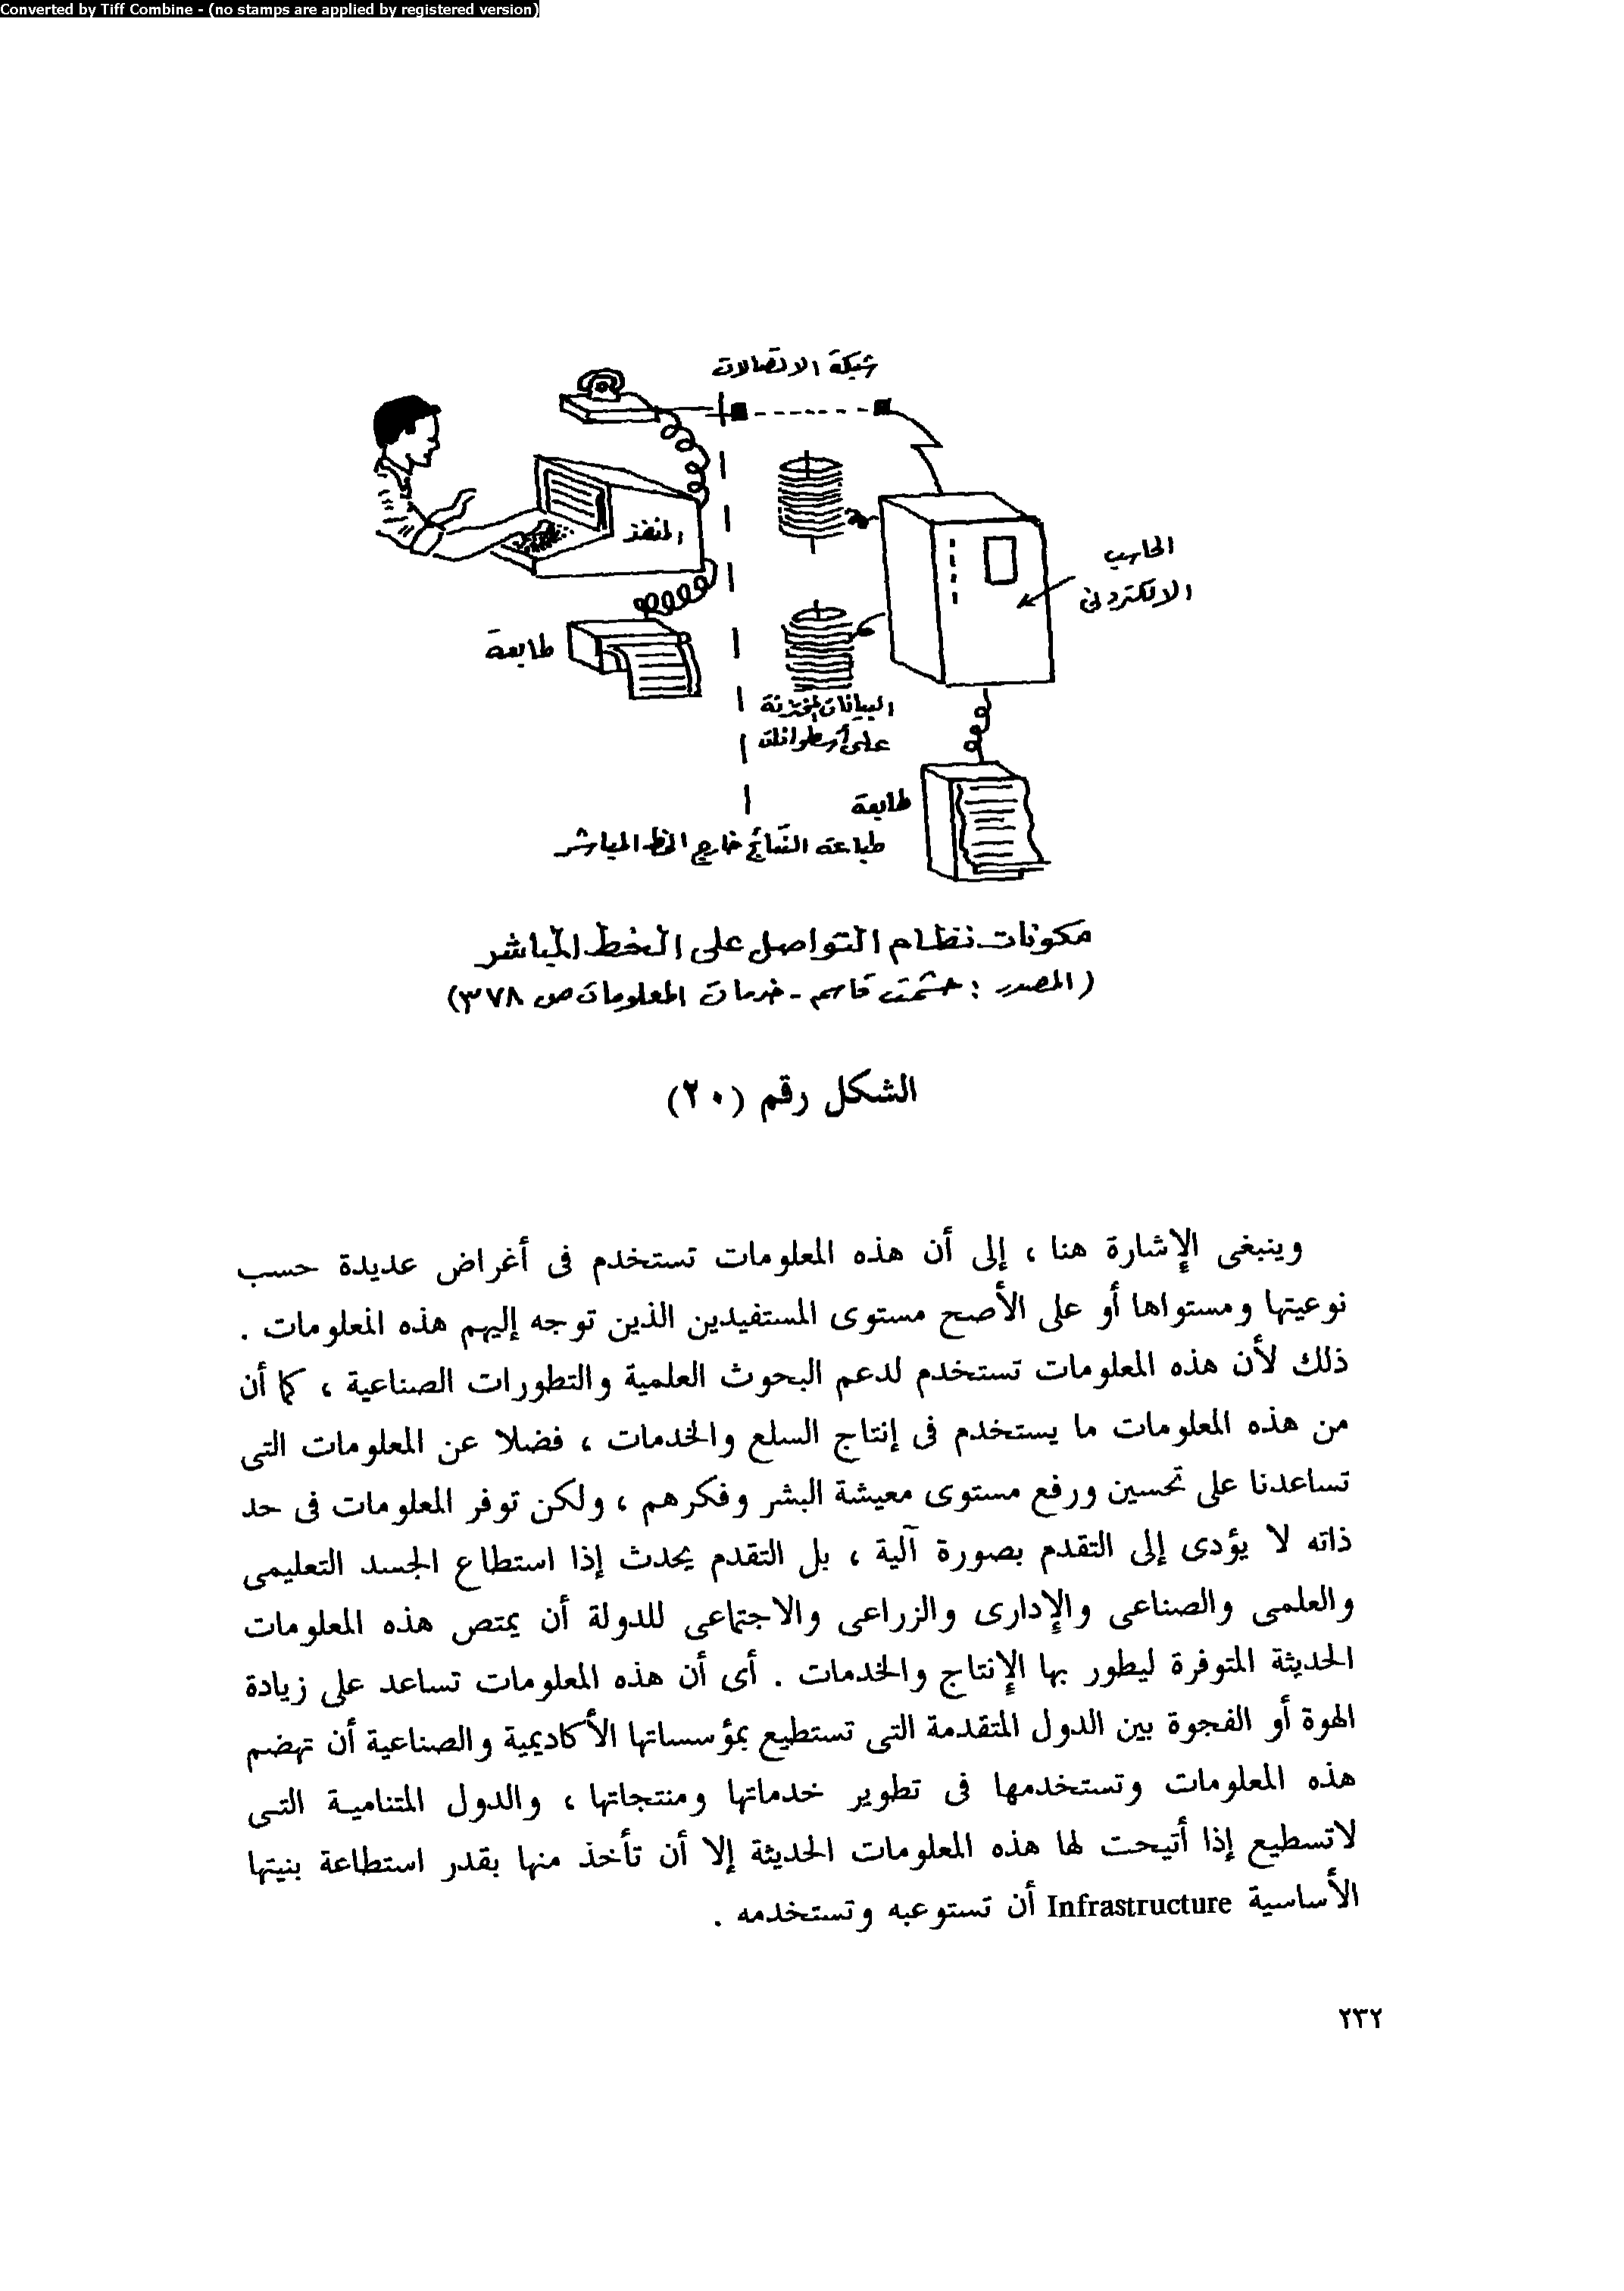 Converted by Tiff Combine - (no stamps are applied by registered version)
شبكة الاتصالات
المنفذ
الحاسب
الالكترونى
طابعة
البيانات المختزنة
على أسطوانات
طابعة
طباعة النتائج خارج الخط المباشر
مكونات نظام التواصل على الخط المباشر
(المصدر : حشمت قاسم - خدمات المعلومات ص ٣٧٨)
الشكل رقم (٢٠)
وينبغى الإشارة هنا ، إلى أن هذه المعلومات تستخدم فى أغراض عديدة حسب
نوعيتها ومستواها أو على الأصح مستوى المستفيدين الذين توجه إليهم هذه المعلومات .
ذلك لأن هذه المعلومات تستخدم لدعم البحوث العلمية والتطورات الصناعية ، كما أن
من هذه المعلومات ما يستخدم فى إنتاج السلع والخدمات ، فضلا عن المعلومات التى
تساعدنا على تحسين ورفع مستوى معيشة البشر وفكرهم ، ولكن توفر المعلومات فى حد
ذاته لا يؤدى إلى التقدم بصورة آلية ، بل التقدم يحدث إذا استطاع الجسد التعليمى
والعلمى والصناعى والإدارى والزراعى والاجتماعى للدولة أن يمتص هذه المعلومات
الحديثة المتوفرة ليطور بها الإنتاج والخدمات . أى أن هذه المعلومات تساعد على زيادة
الهوة أو الفجوة بين الدول المتقدمة التى تستطيع بمؤسساتها الأكاديمية والصناعية أن تهضم
هذه المعلومات وتستخدمها فى تطوير خدماتها ومنتجاتها ، والدول المتنامية التى
لاتسطيع إذا أتيحت لها هذه المعلومات الحديثة إلا أن تأخذ منها بقدر استطاعة بنيتها
الأساسية Infrastructure أن تستوعبه وتستخدمه .
٢٣٢